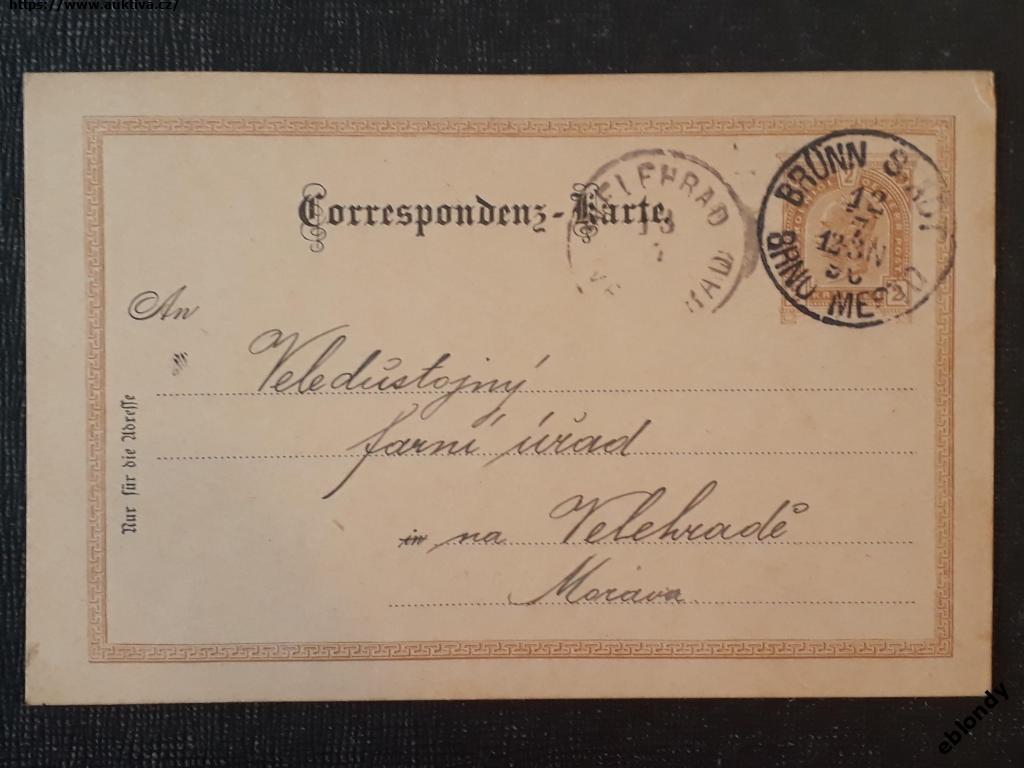 https://www.auktiva.cz/
Correspondenz-Karte.
VELEHRAD
13
7
BRÜNN STADT
12
7
12·3N
BRNO MĚSTO
2
An
Veledůstojný
farní úřad
in na Velehradě
Morava
Nur für die Adresse
eblondy